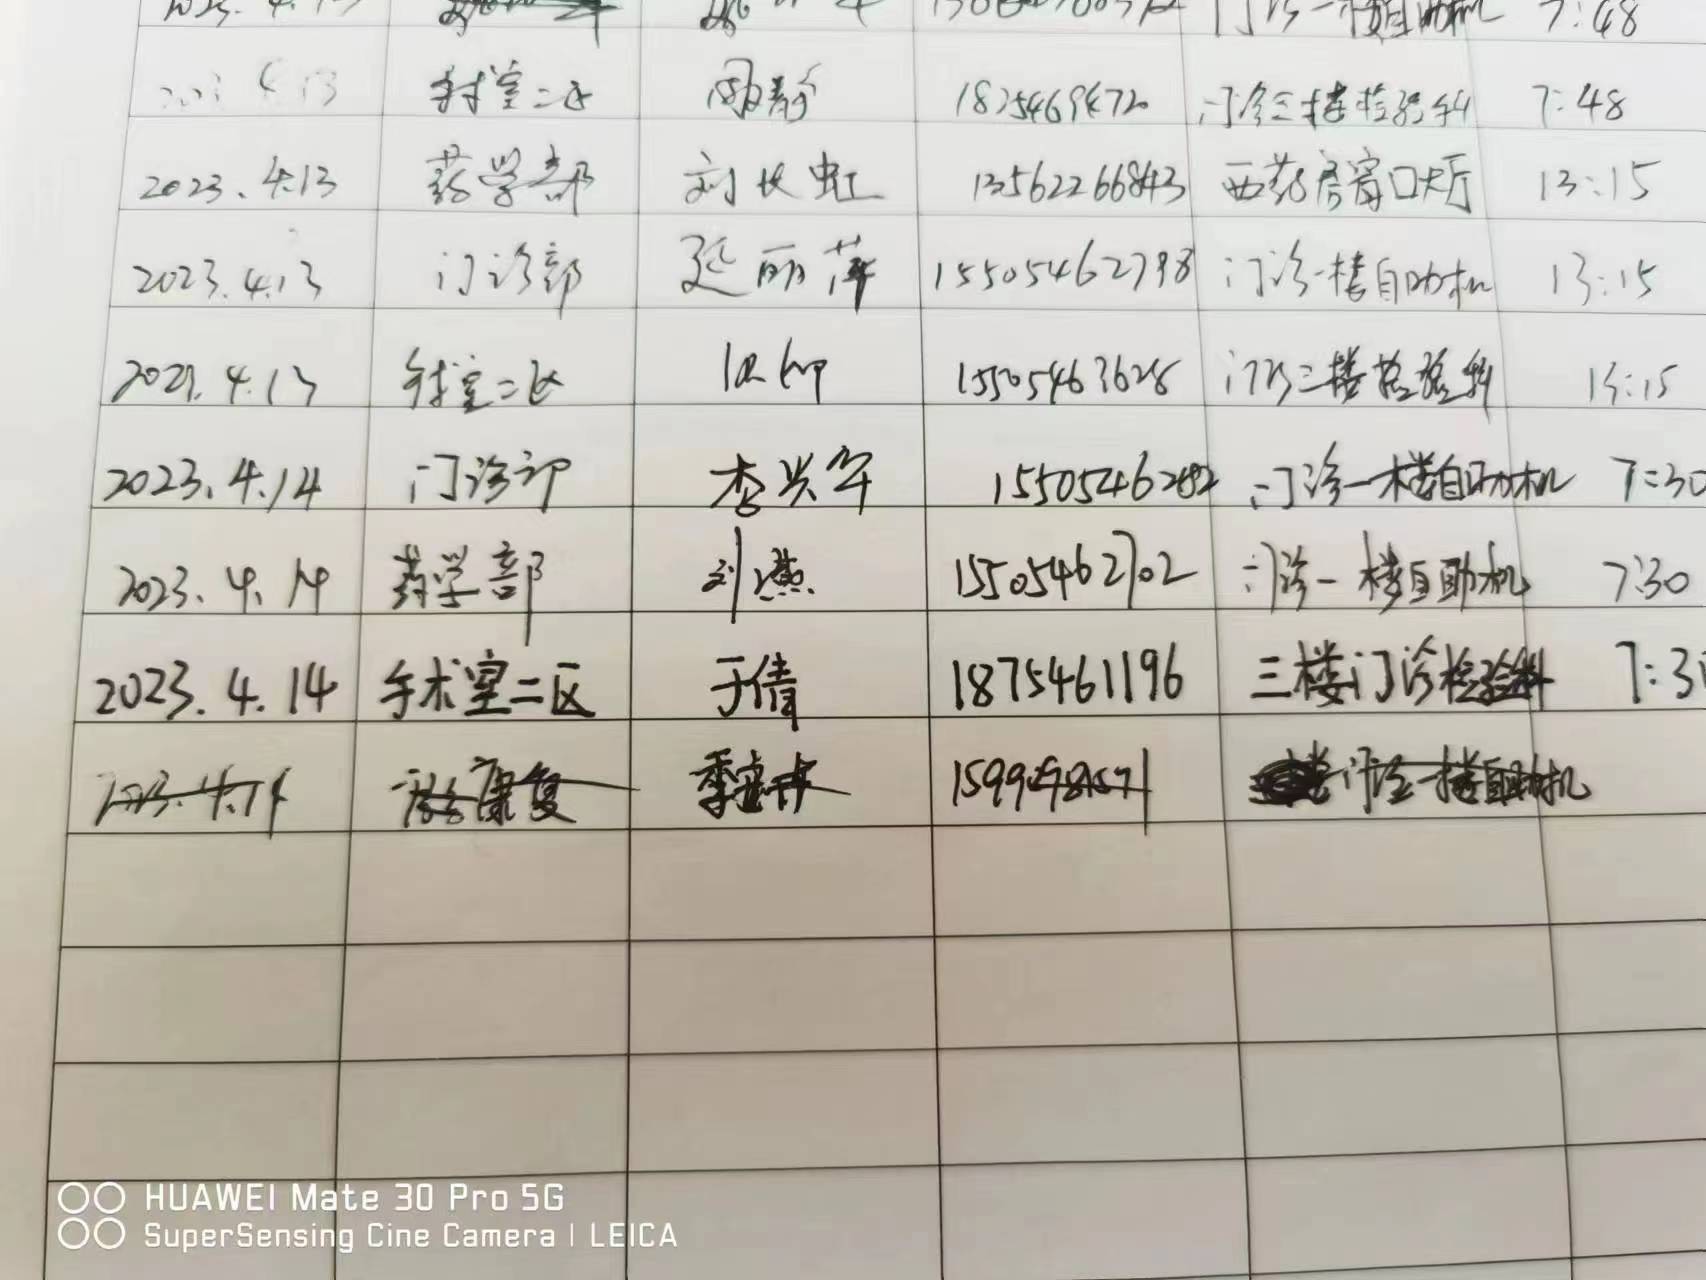 7:48
4.13 手术室二区 周静 18254694720 门诊三楼检验科 7:48
2023.4.13 药学部 刘长虹 13562266843 西药房窗口大厅 13:15
2023.4.13 门诊部 延丽萍 15505462798 门诊一楼自助机 13:15
2023.4.13 手术室二区 15505463628 门诊三楼检验科 13:15
2023.4.14 门诊部 李兴军 15505462 门诊一楼自助机 7:30
2023.4.14 药学部 刘燕 15505462702 门诊一楼自助机 7:30
2023.4.14 手术室二区 于倩 18754611196 三楼门诊检验科 7:3
2023.4.14 康复 季 门诊一楼自助机
HUAWEI Mate 30 Pro 5G
SuperSensing Cine Camera | LEICA